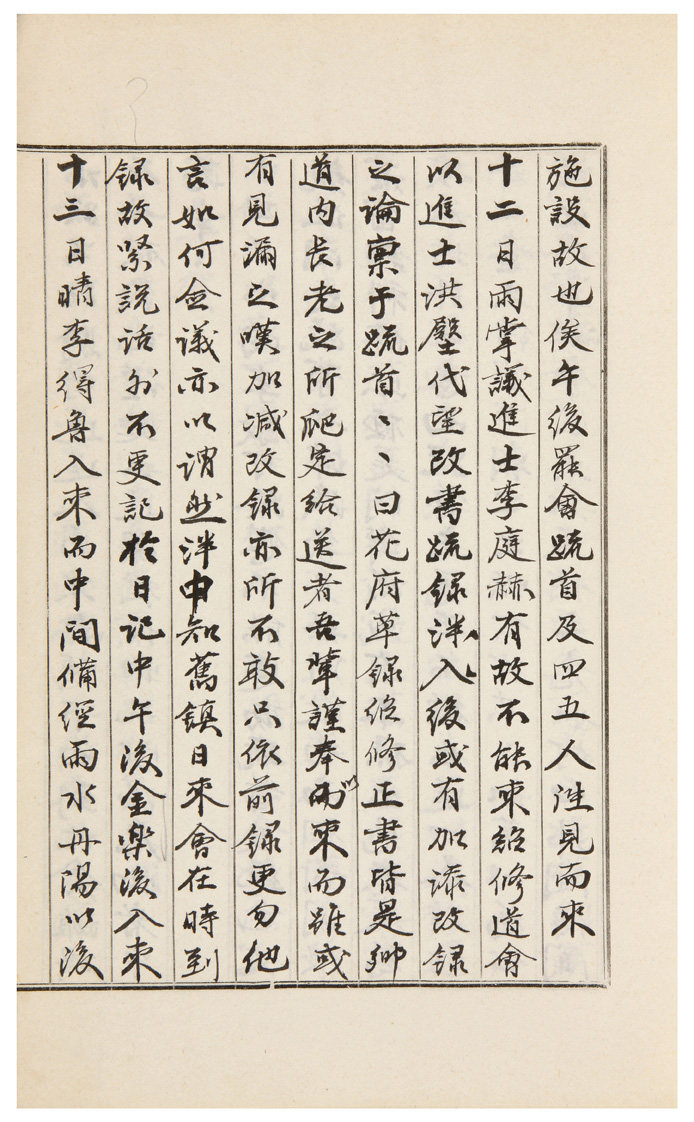 施設故也俟午後罷會疏首及四五人往見而來
十二日雨掌議進士李庭赫有故不能來紹修道會
以進士洪㙠代望改書疏錄泮入後或有加添改錄
之論稟于疏首〻〻曰花府草錄縂修正書皆是鄉
道內長老之所爬定給送者吾輩謹奉而以來而雖或
有見漏之嘆加減改錄亦所不敢只依前錄更勿他
言如何僉議亦以謂然泮中知舊鎮日來會在時到
錄故緊說話外不更記於日記中午後金樂浚入來
十三日晴李得魯入來而中間備經雨水丹陽以後